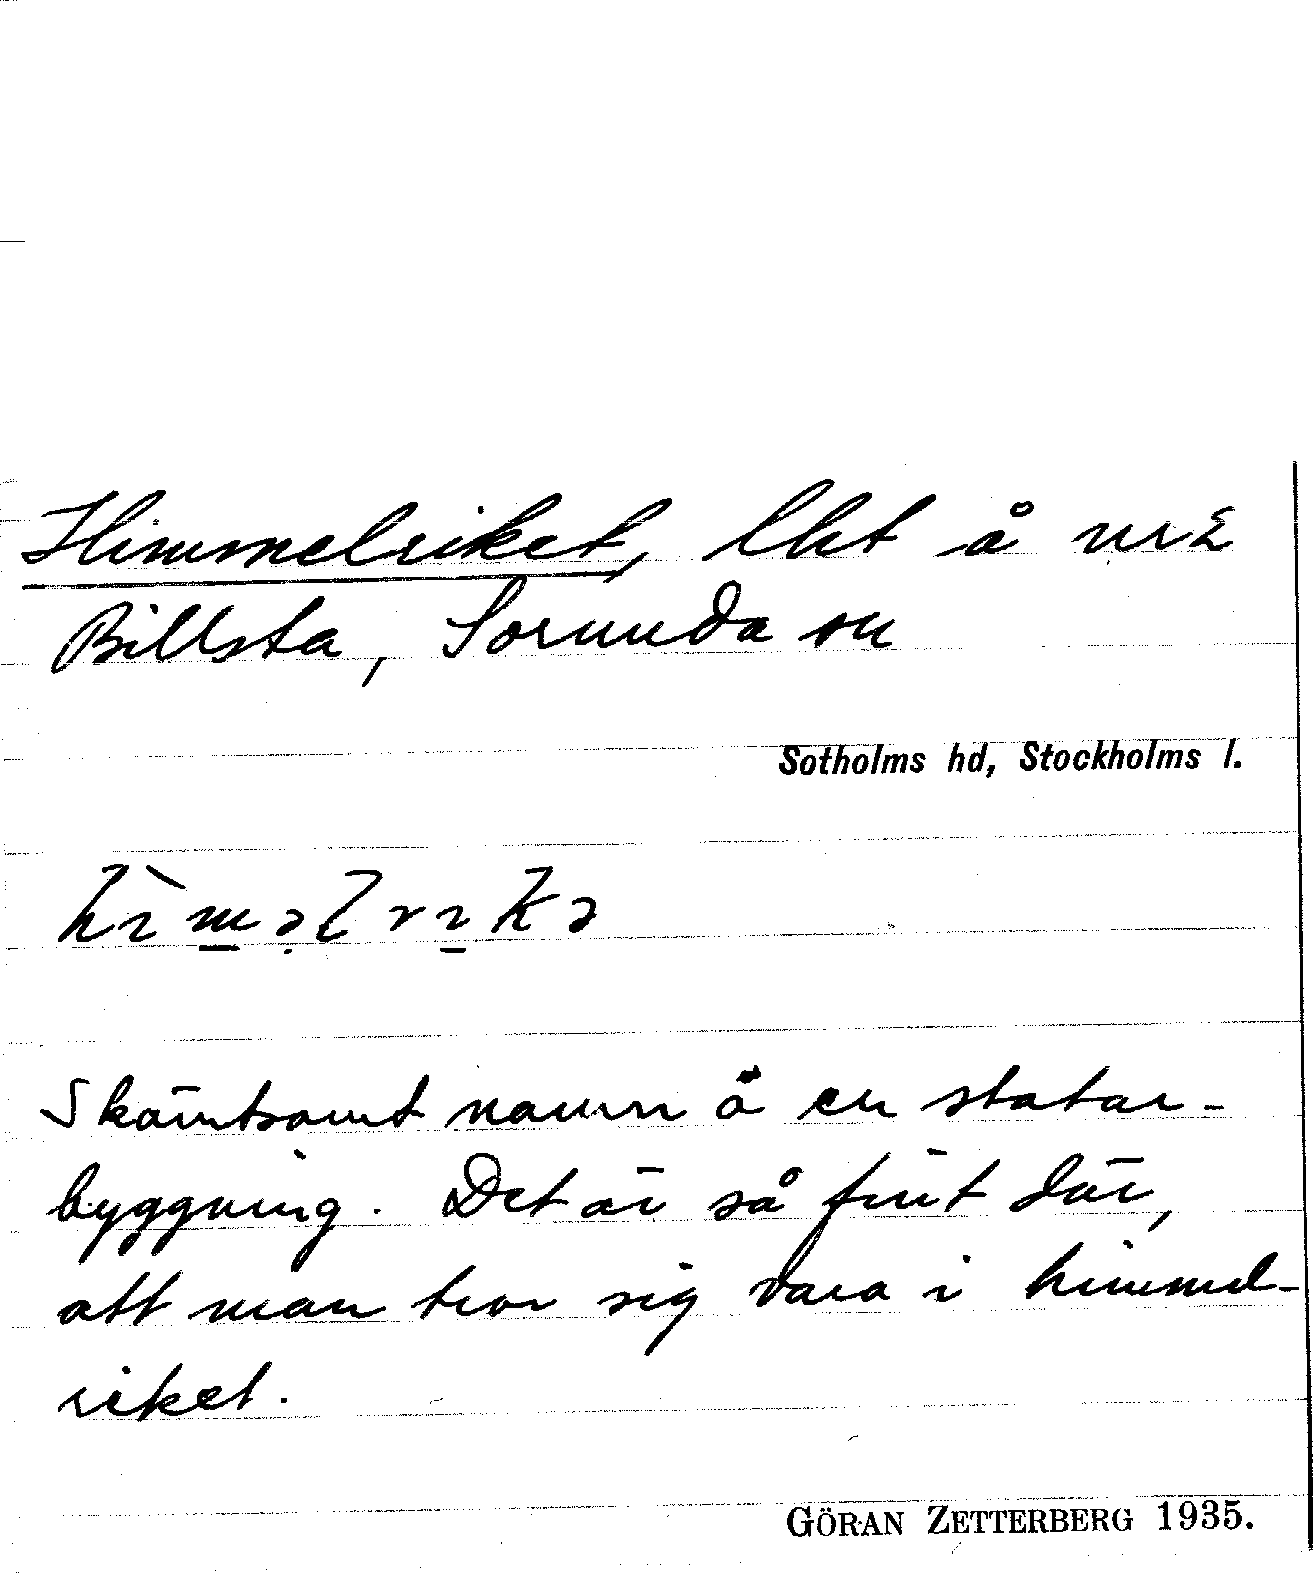 Himmelriket, lht å nr 2
Billsta, Sorunda sn
Sotholms hd, Stockholms l.
Skämtsamt namn å en statar-
byggning. Det är så fint där,
att man tror sig vara i himmel-
riket.
GÖRAN ZETTERBERG 1935.